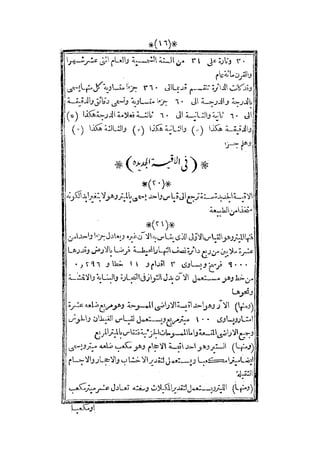 *(١٦)*
٣٠ وتارة على ٣١ من السنة الشمسية والعام اثنى عشر شهرا
والقرن مائة عام
وقد كانت الدائرة تنقسم قديما الى ٣٦٠ جزءا متساوية كل منها يسمى
بالدرجة والدرجة الى ٦٠ جزءا متساوية وتسمى دقائق والدقيقة
الى ٦٠ ثانية والثانية الى ٦٠ ثالثة فعلامة الدرجة هكذا (°)
والدقيقة هكذا (َ) والثانية هكذا (ً) والثالثة هكذا ( )
وهلم جرا
*(فى الاقيسة الجديدة)*
*(٢٠)*
الاقيسة الجديدة ترجع الى قياس واحد يسمى بالميتر وهو لا يتغير ابدا لكونه
متخذا من الطبيعة
*(٢١)*
فالميتر هو القياس الاولى الذى يقاس به الآن غيره ويعادل جزءا واحدا من
عشرة ملايين من ربع دائرة نصف النهار المحيطة فرضا بالارض وقدرها
٩٠٠٠ فرسخ ويساوى ٣ اقدام و ١١ خطا و ٢٩٦ر٠
من خط وهو مستعمل الآن بدل التواز فى التجارة والبناية والاقمشة
ونحوها
(ومنها) الآر وهو احد اقيسة الاراضى الممسوحة وهو مربع ضلعه عشرة
امتار ويساوى ١٠٠ ميتر مربع ويستعمل لقياس الغيطان والحوش
وجميع الاراضى المتسعة واما المسوحات الجزئية فتقاس بالميتر المربع
(ومنها) الستير وهو احد اقيسة الاحجام وهو مكعب ضلعه ميتر ويسمى
ايضا ميترا مكعبا ويستعمل لتقدير الاخشاب والاحجار والاجسام
الثقيلة
(ومنها) الليتر ويستعمل لتقدير المكيلات وسعته تعادل عشر ميتر مكعب